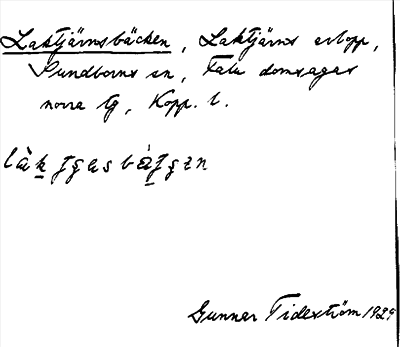 Laktjärnsbäcken, Laktjärns avlopp,
Sundborns sn, Falu domsagas
norra tg, Kopp. l.
Gunnar Tideström 1929